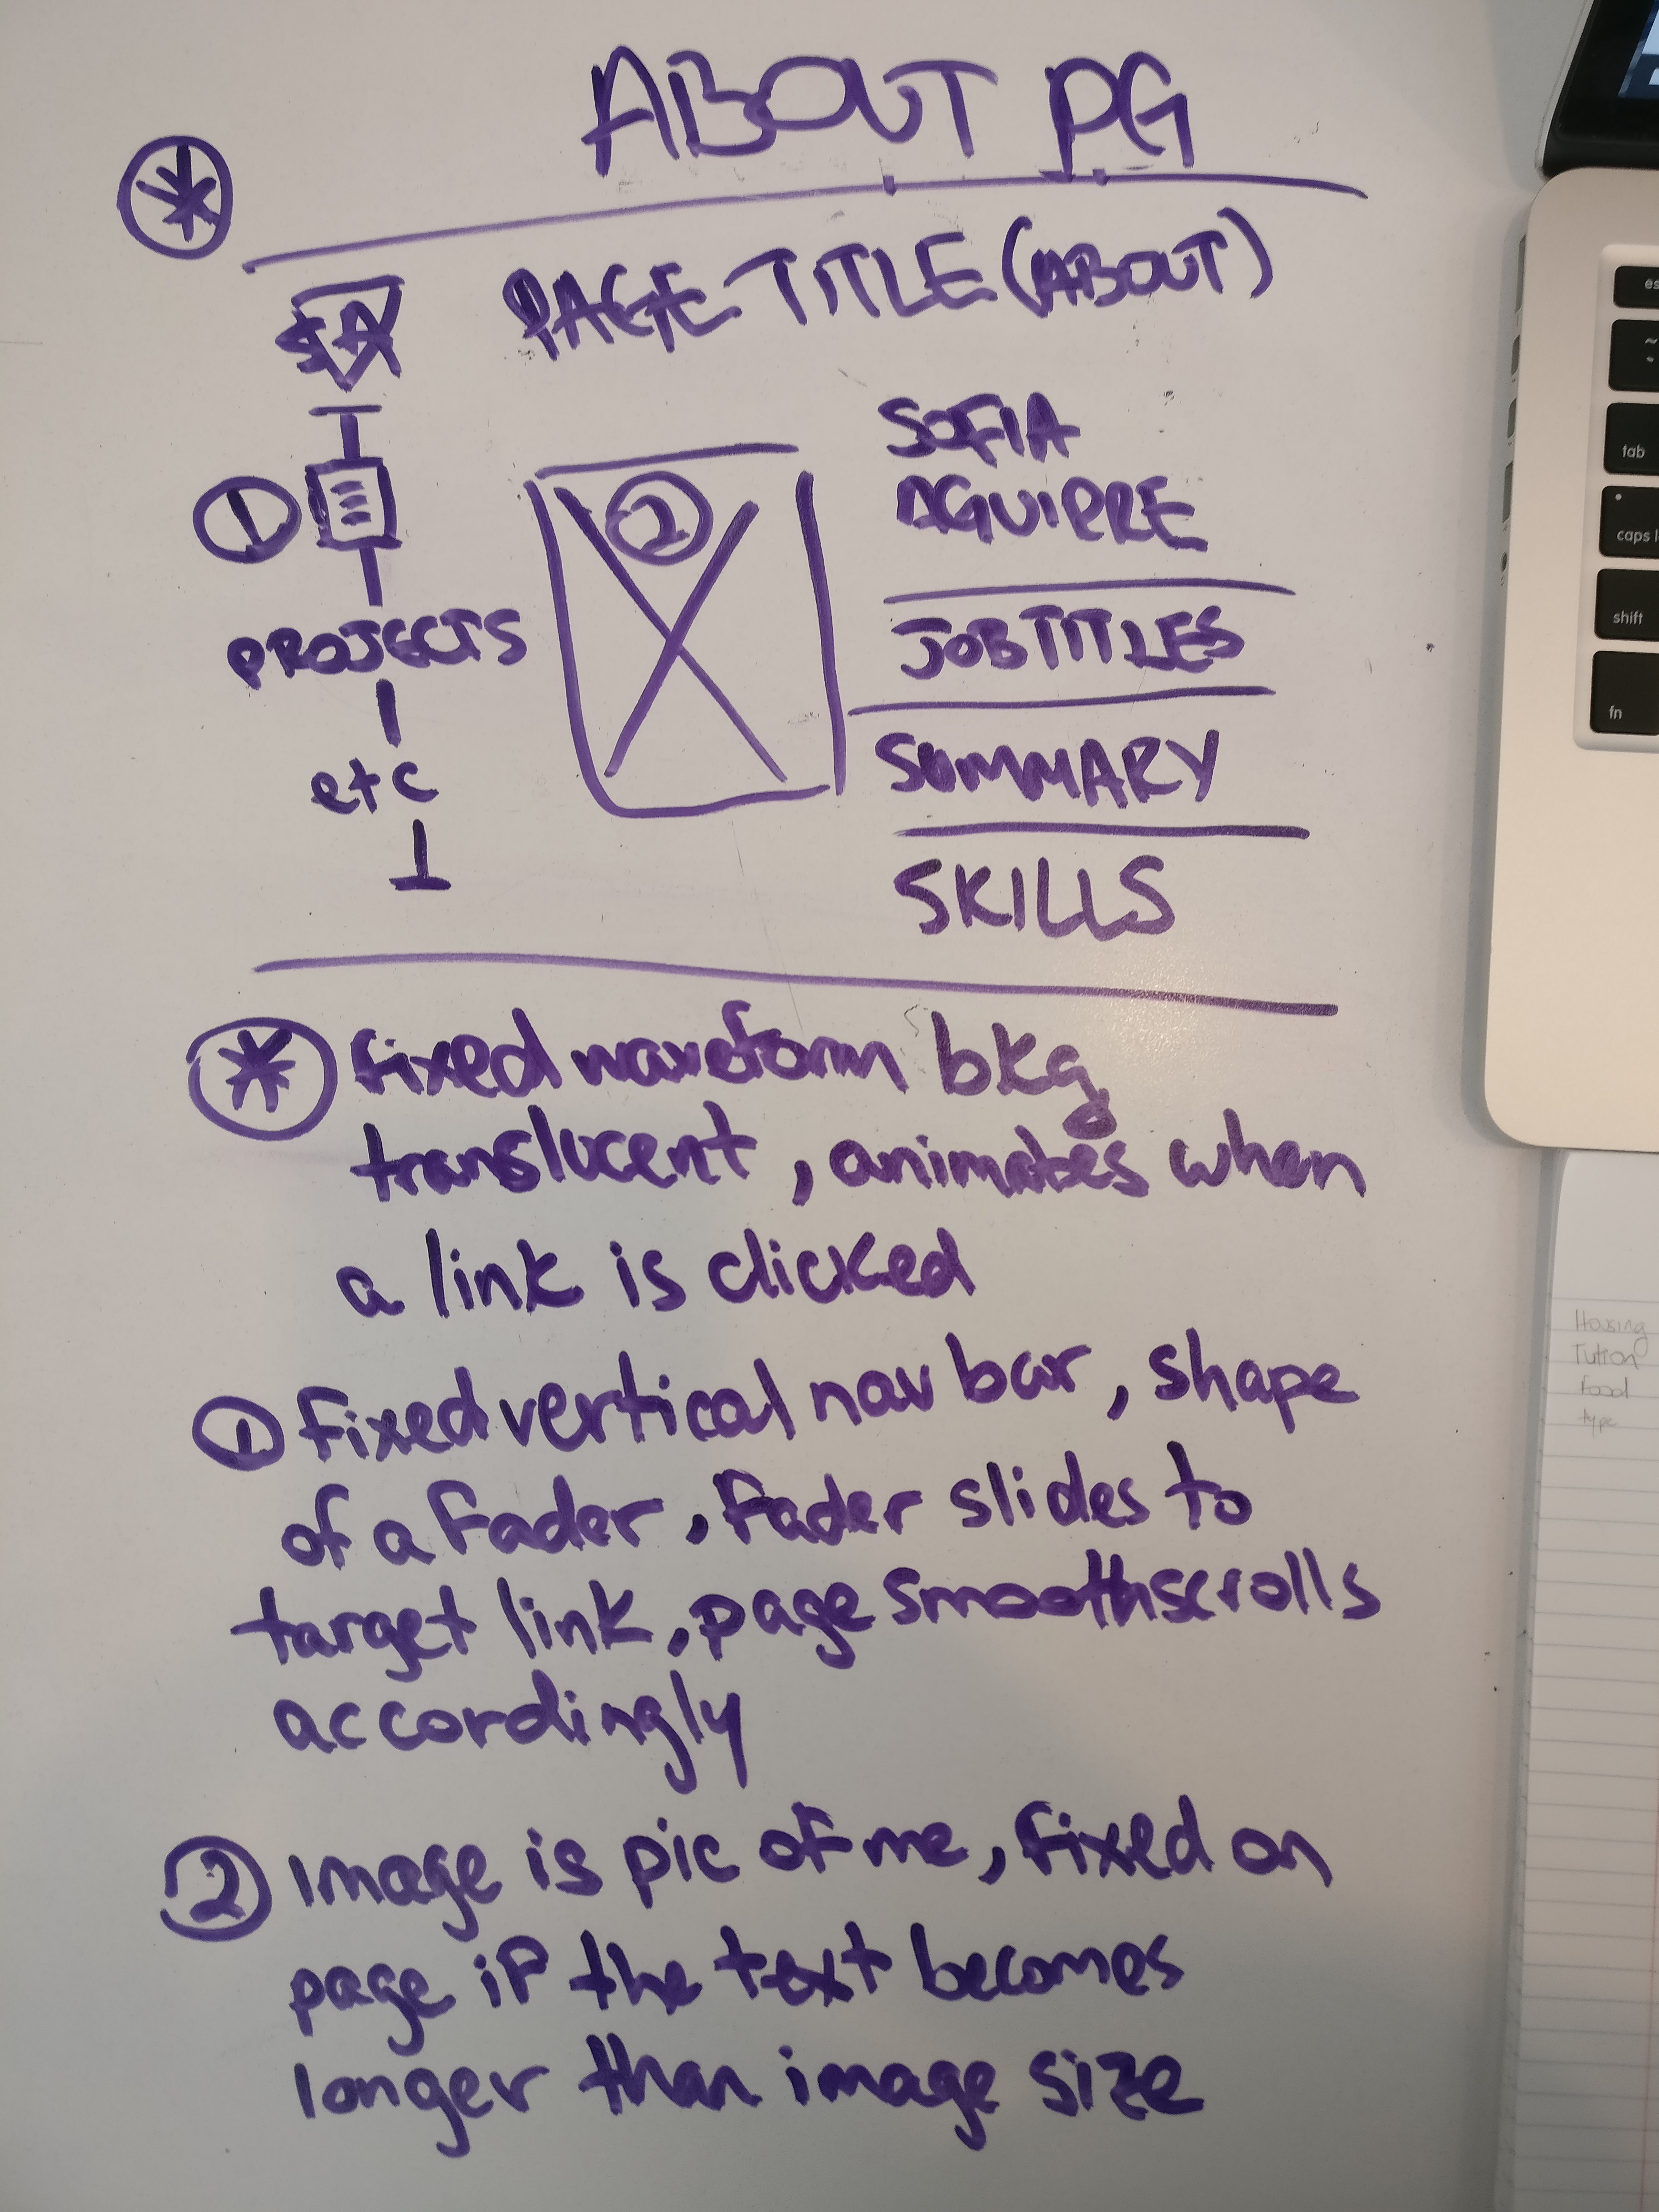 ABOUT PG
*
SA
PAGE TITLE (ABOUT)
SOFIA
AGUIRRE
1
2
PROJECTS
JOB TITLES
etc
SUMMARY
SKILLS
* fixed waveform bkg
translucent, animates when
a link is clicked
1 fixed vertical nav bar, shape
of a fader, fader slides to
target link, page smoothscrolls
accordingly
2 image is pic of me, fixed on
page if the text becomes
longer than image size
es
~
`
tab
caps l
shift
fn
Housing
Tution
Food
type